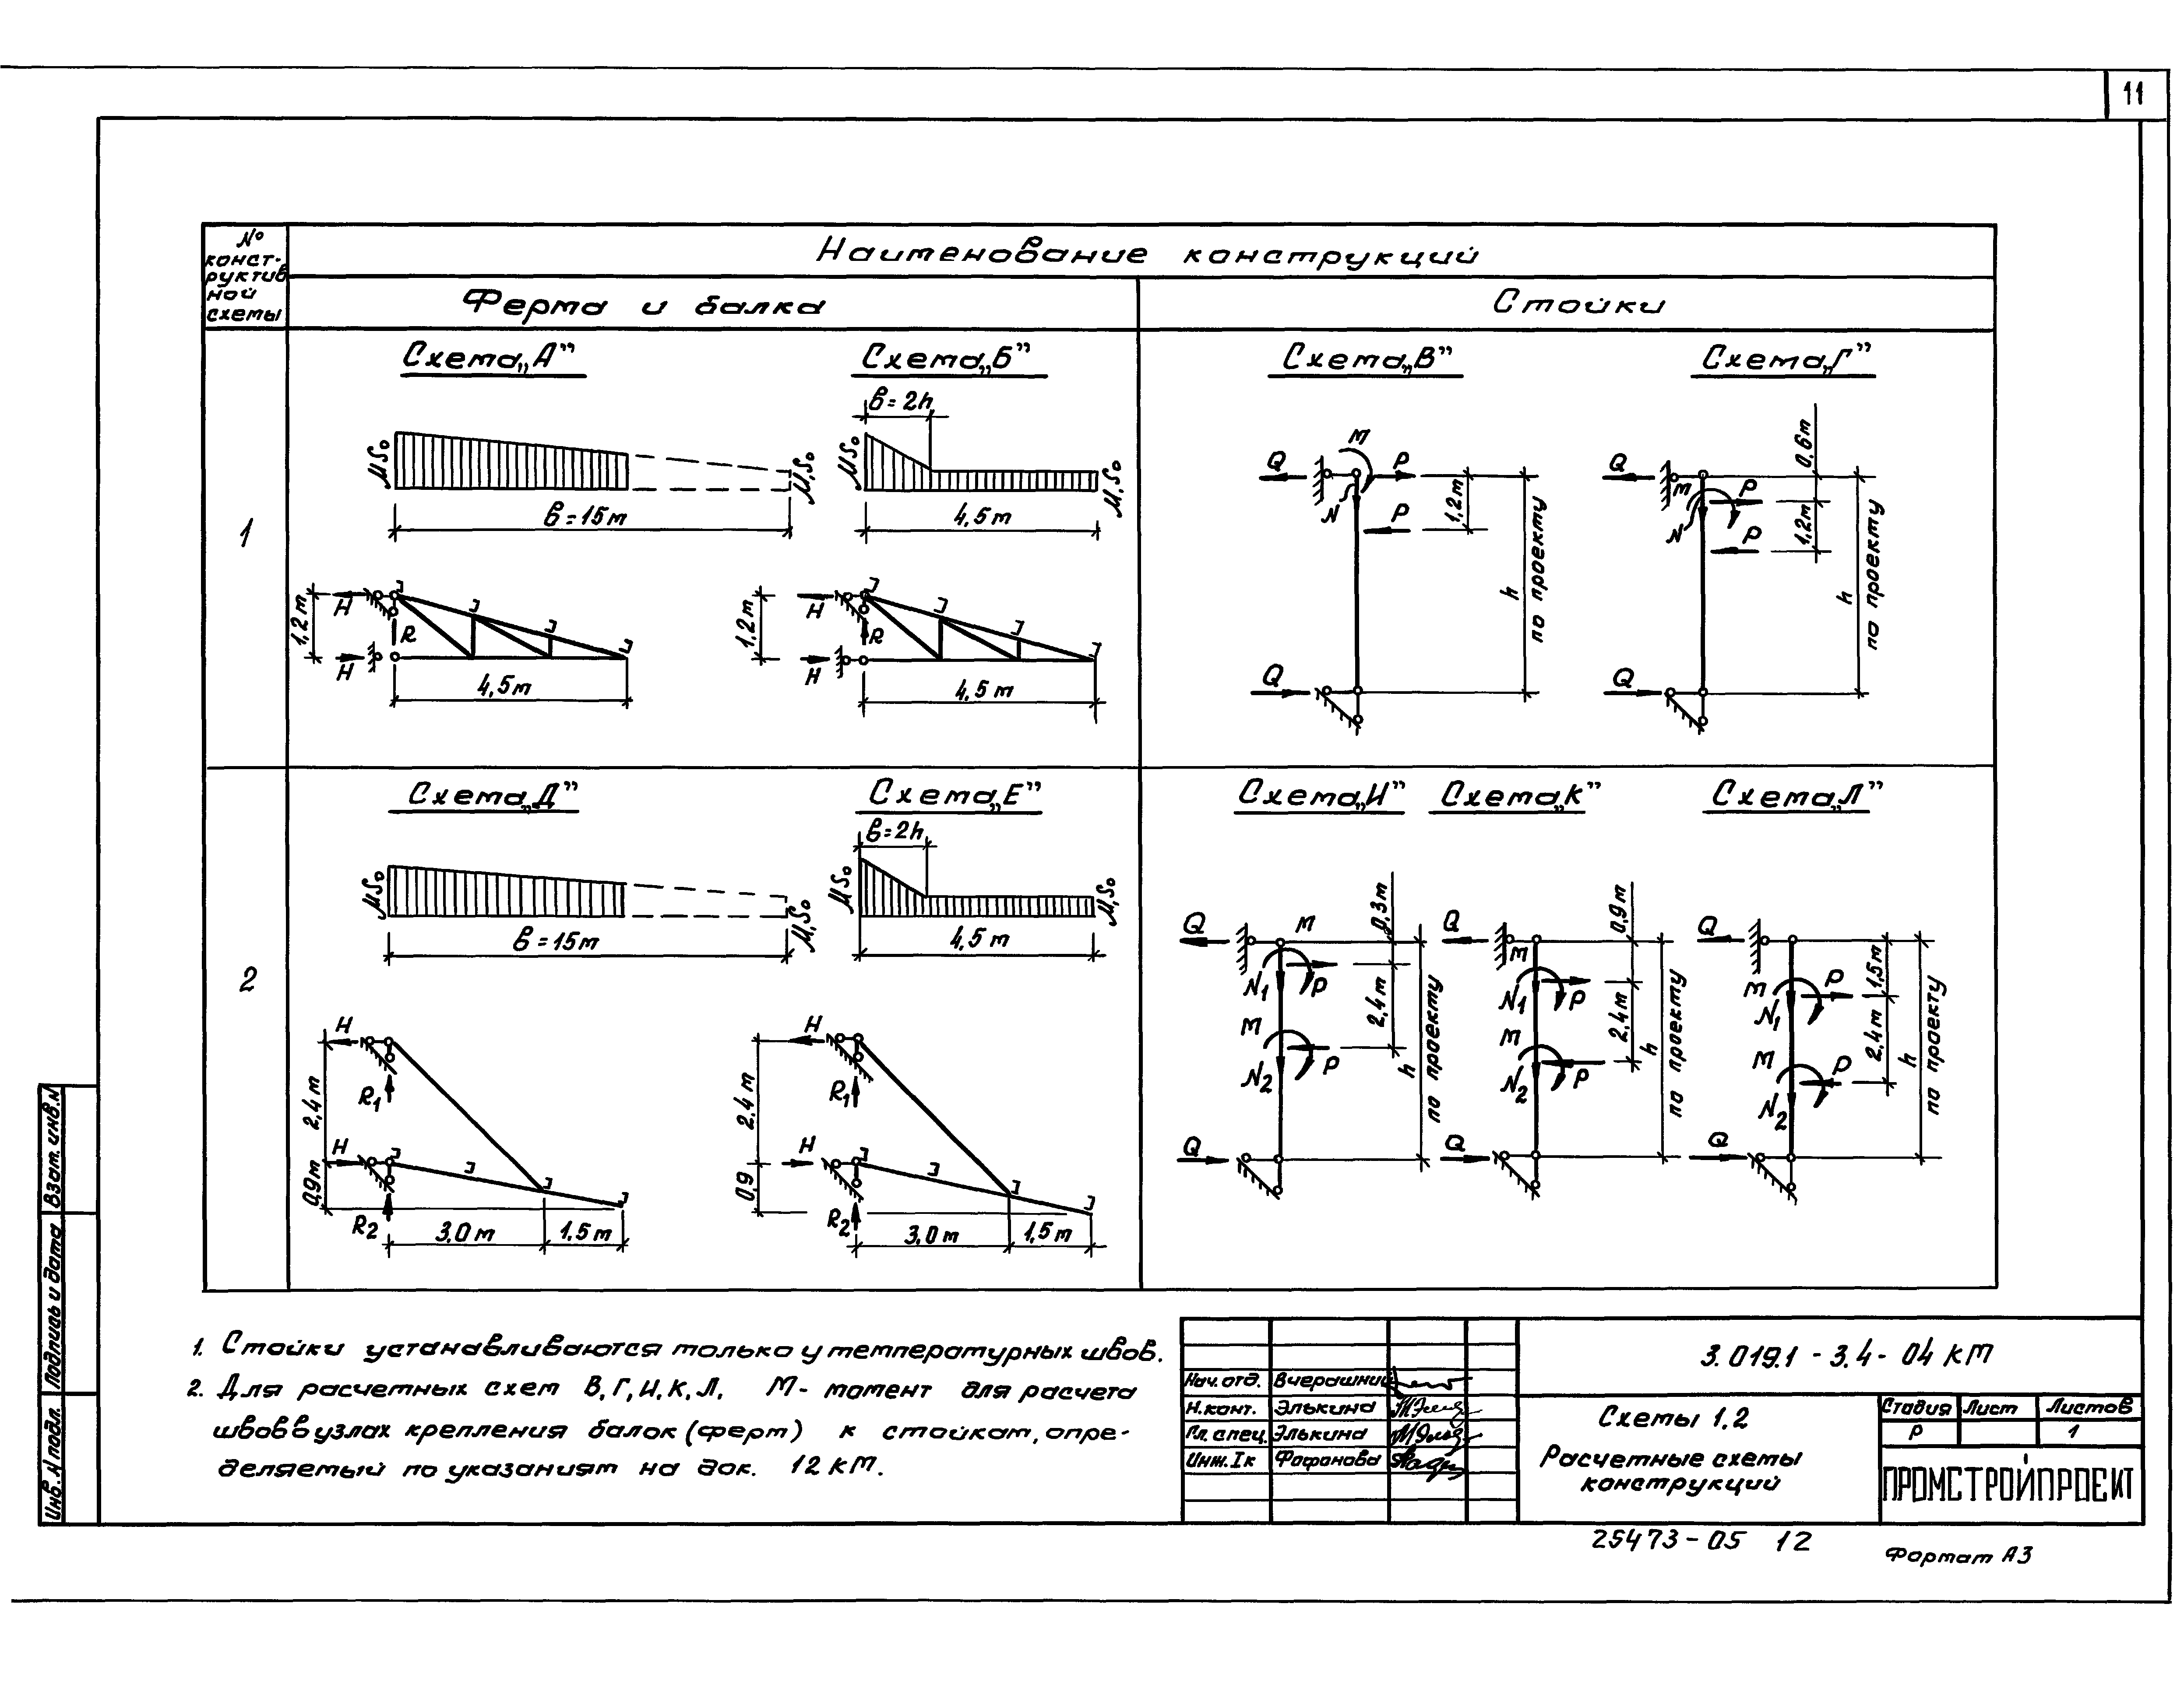 11
№
конст-
руктив
ной
схемы
Наименование конструкций
Ферма и балка
Стойки
1
Схема „А”
μS₀
μ,S₀
в = 15м
H
H
R
1,2м
4,5м
Схема „Б”
в = 2h
μS₀
μ,S₀
4,5м
H
H
R
1,2м
4,5м
Схема „В”
M
Q
P
N
P
1,2м
h
по проекту
Q
Схема „Г”
0,6м
Q
M
P
N
P
1,2м
h
по проекту
Q
2
Схема „Д”
μS₀
μ,S₀
в = 15м
H
R1
2,4м
H
0,9м
R2
3,0м
1,5м
Схема „Е”
в = 2h
μS₀
μ,S₀
4,5м
H
R1
2.4м
H
0,9
R2
3,0м
1,5м
Схема „И”
Q
M
0,3м
N1
P
2,4м
M
N2
P
h
по проекту
Q
Схема „К”
Q
0,9м
M
N1
P
2,4м
M
N2
P
h
по проекту
Q
Схема „Л”
Q
1,5м
M
P
N1
2,4м
M
P
N2
h
по проекту
Q
1. Стойки устанавливаются только у температурных швов.
2. Для расчетных схем В, Г, И, К, Л, М - момент для расчета
швов в узлах крепления балок (ферм) к стойкам, опре-
деляемый по указаниям на док. 12 КМ.
3.019.1 - 3.4 - 04 КМ
Нач. отд. Вчерашний
Н.конт. Элькина
Гл. спец. Элькина
Инж. Iк Фафанова
Схемы 1.2
Расчетные схемы
конструкций
Стадия Лист Листов
Р 1
ПРОМСТРОЙПРОЕКТ
25473-05 12
Формат А3
Взам. инв. №
Подпись и дата
Инв. № подл.